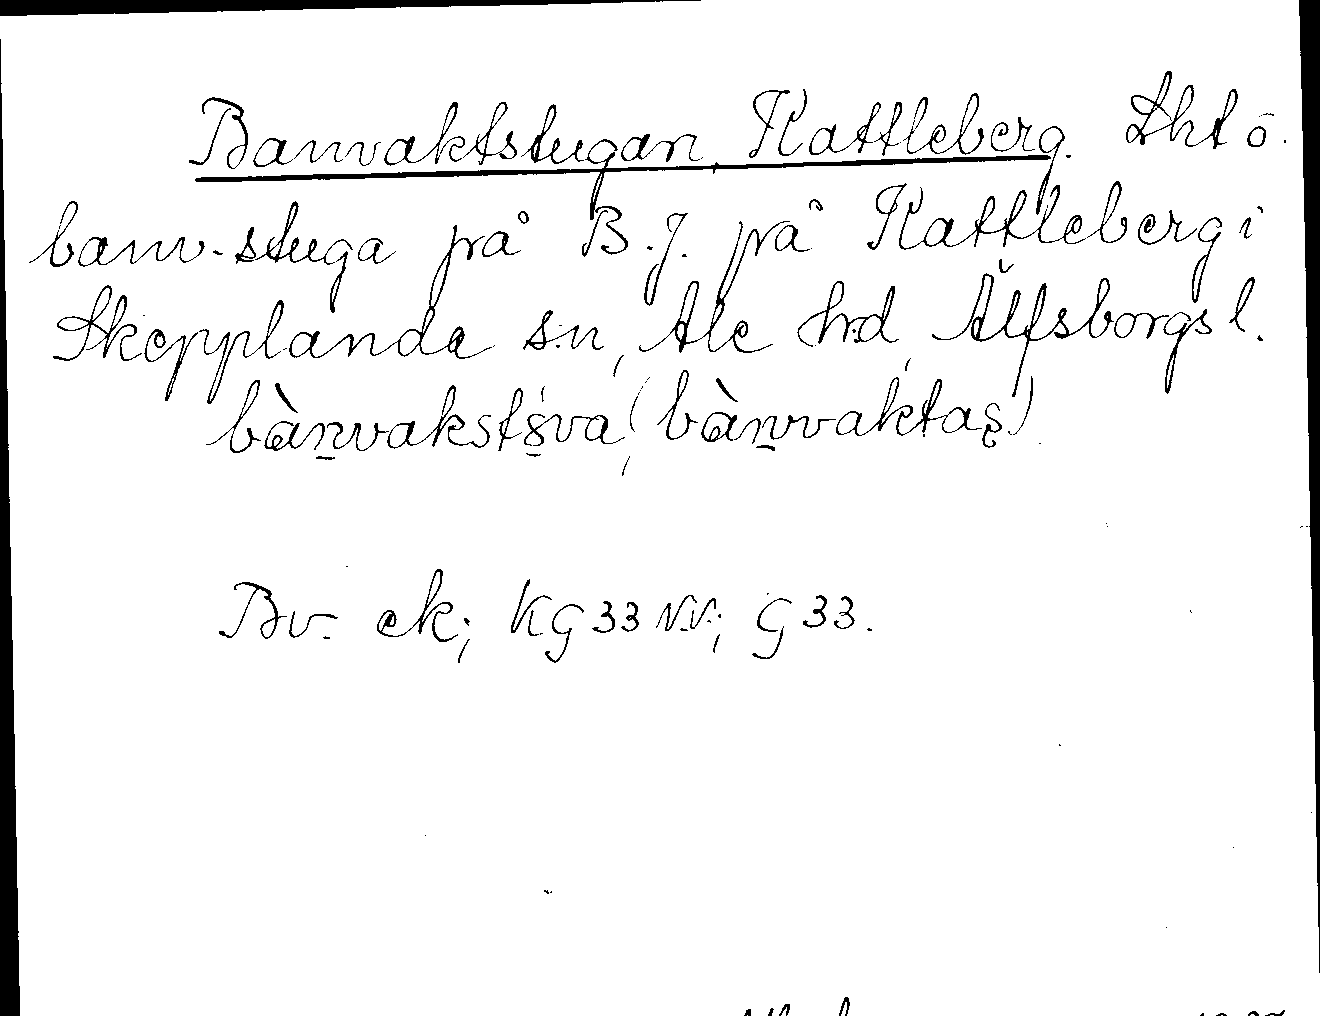 Banvaktstugan, Kattleberg. Lht o.
banv.stuga på B.J. på Kattleberg i
Skepplanda sn, Ale hrd, Älfsborgs l.
bànvakstova, (bànvaktas)
Bv. ek; KG33 NV; G33.